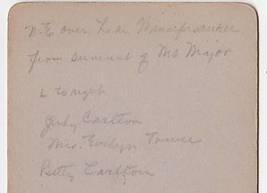 N.E. over Lake Winnipesaukee
from summit of Mt Major
L to right
Judy Carlton
Mrs. Evelyn
Betty Carlton